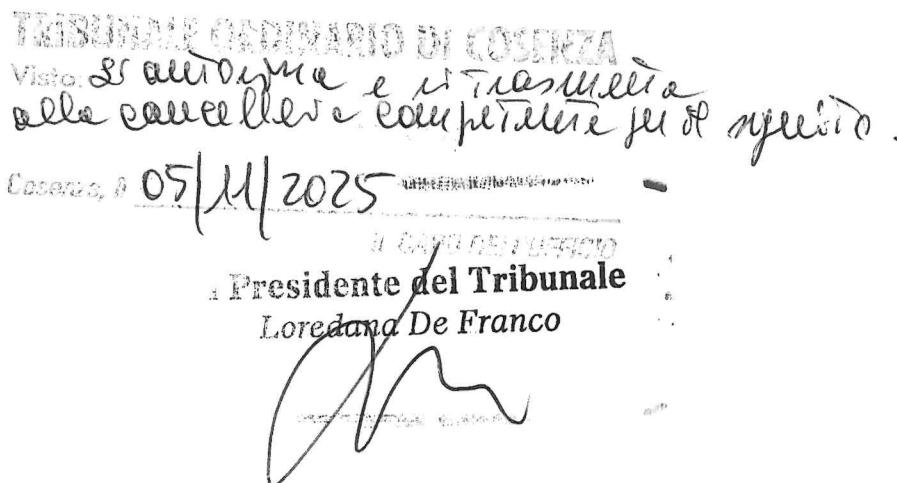 TRIBUNALE ORDINARIO DI COSENZA
Visto: Si autorizza e si trasmetta
alla cancelleria competente per il seguito.
Cosenza, li 05/11/2025
IL CAPO DELL'UFFICIO
Presidente del Tribunale
Loredana De Franco